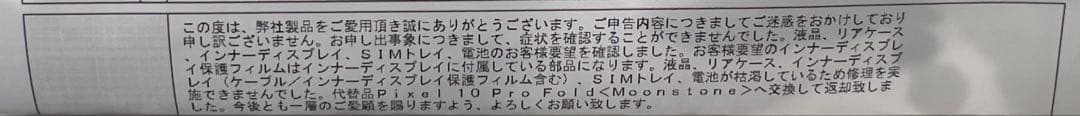 この度は、弊社製品をご愛用頂き誠にありがとうございます。ご申告内容につきましてご迷惑をおかけしており
申し訳ございません。お申し出事象につきまして、症状を確認することができませんでした。液晶、リアケース
、インナーディスプレイ、SIMトレイ、電池のお客様要望を確認しました。お客様要望のインナーディスプレ
イ保護フィルムはインナーディスプレイに付属している部品になります。液晶、リアケース、インナーディスプ
レイ(ケーブル/インナーディスプレイ保護フィルム含む)、SIMトレイ、電池が枯渇しているため修理を実
施できませんでした。代替品Pixel 10 Pro Fold<Moonstone>へ交換して返却致しま
した。今後とも一層のご愛顧を賜りますよう、よろしくお願い致します。